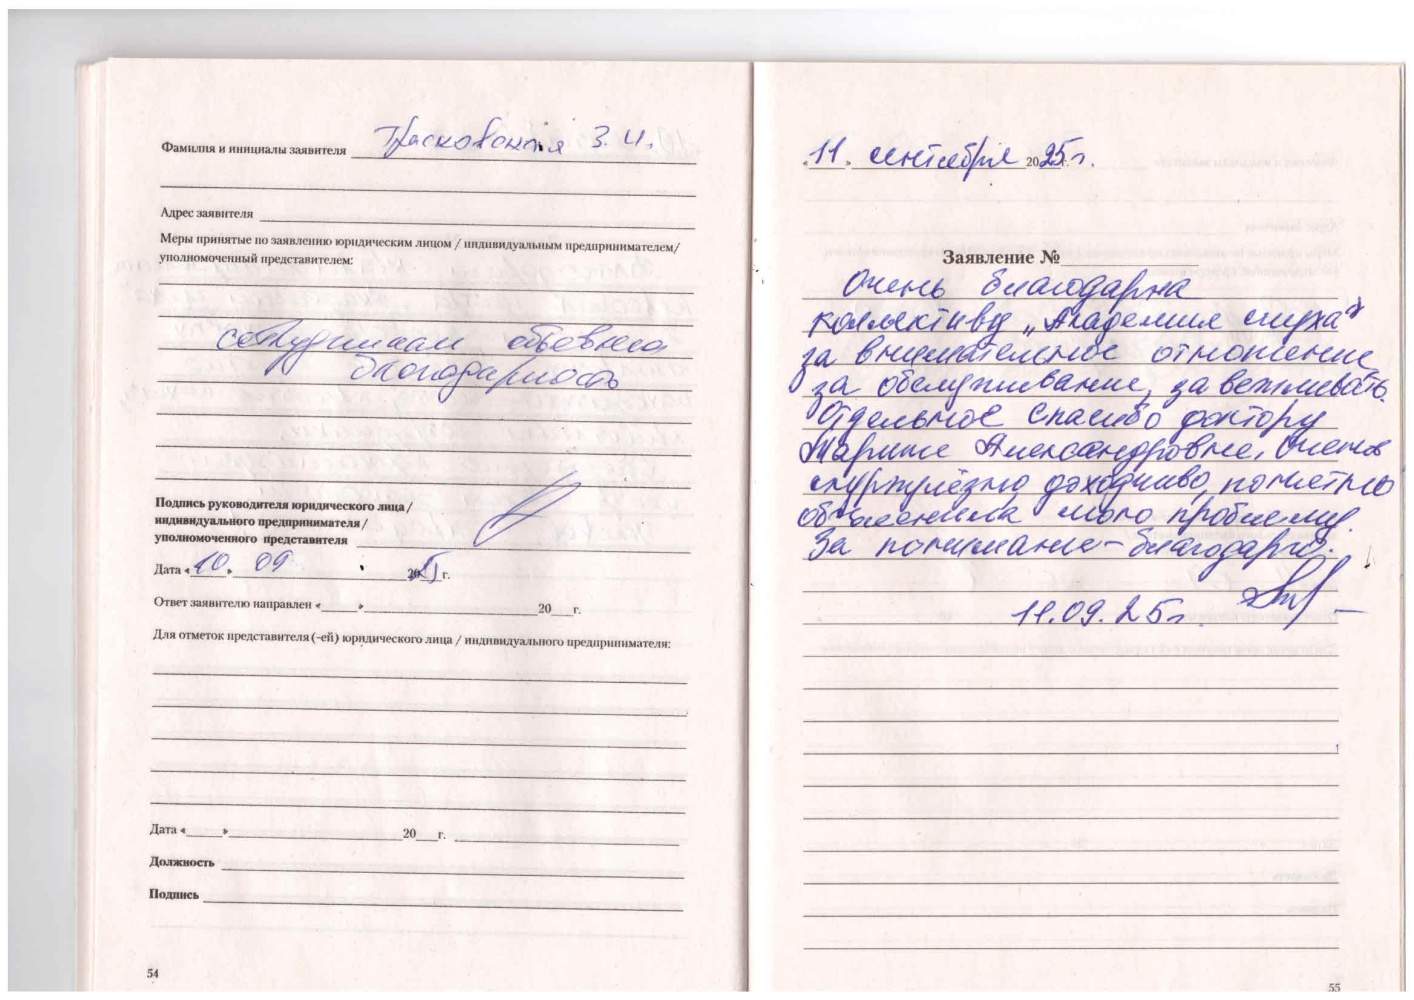 Фамилия и инициалы заявителя З. И.
Адрес заявителя
Меры принятые по заявлению юридическим лицом / индивидуальным предпринимателем/
уполномоченный представителем:
сотрудникам объявлена
благодарность
Подпись руководителя юридического лица /
индивидуального предпринимателя /
уполномоченного представителя
Дата «10» 09 20 г.
Ответ заявителю направлен «____»____ 20__г.
Для отметок представителя (-ей) юридического лица / индивидуального предпринимателя:
Дата «____»____ 20__г.
Должность
Подпись
54
«11» сентября 2025г.
Заявление №
Очень благодарна
коллективу „Академия слуха"
за внимательное отношение
за обслуживание, за вежливость.
Отдельное спасибо доктору
Марине Александровне, Очень
доходчиво, понятно
объяснила мою проблему.
За понимание - благодарю.
11.09.25г.
55